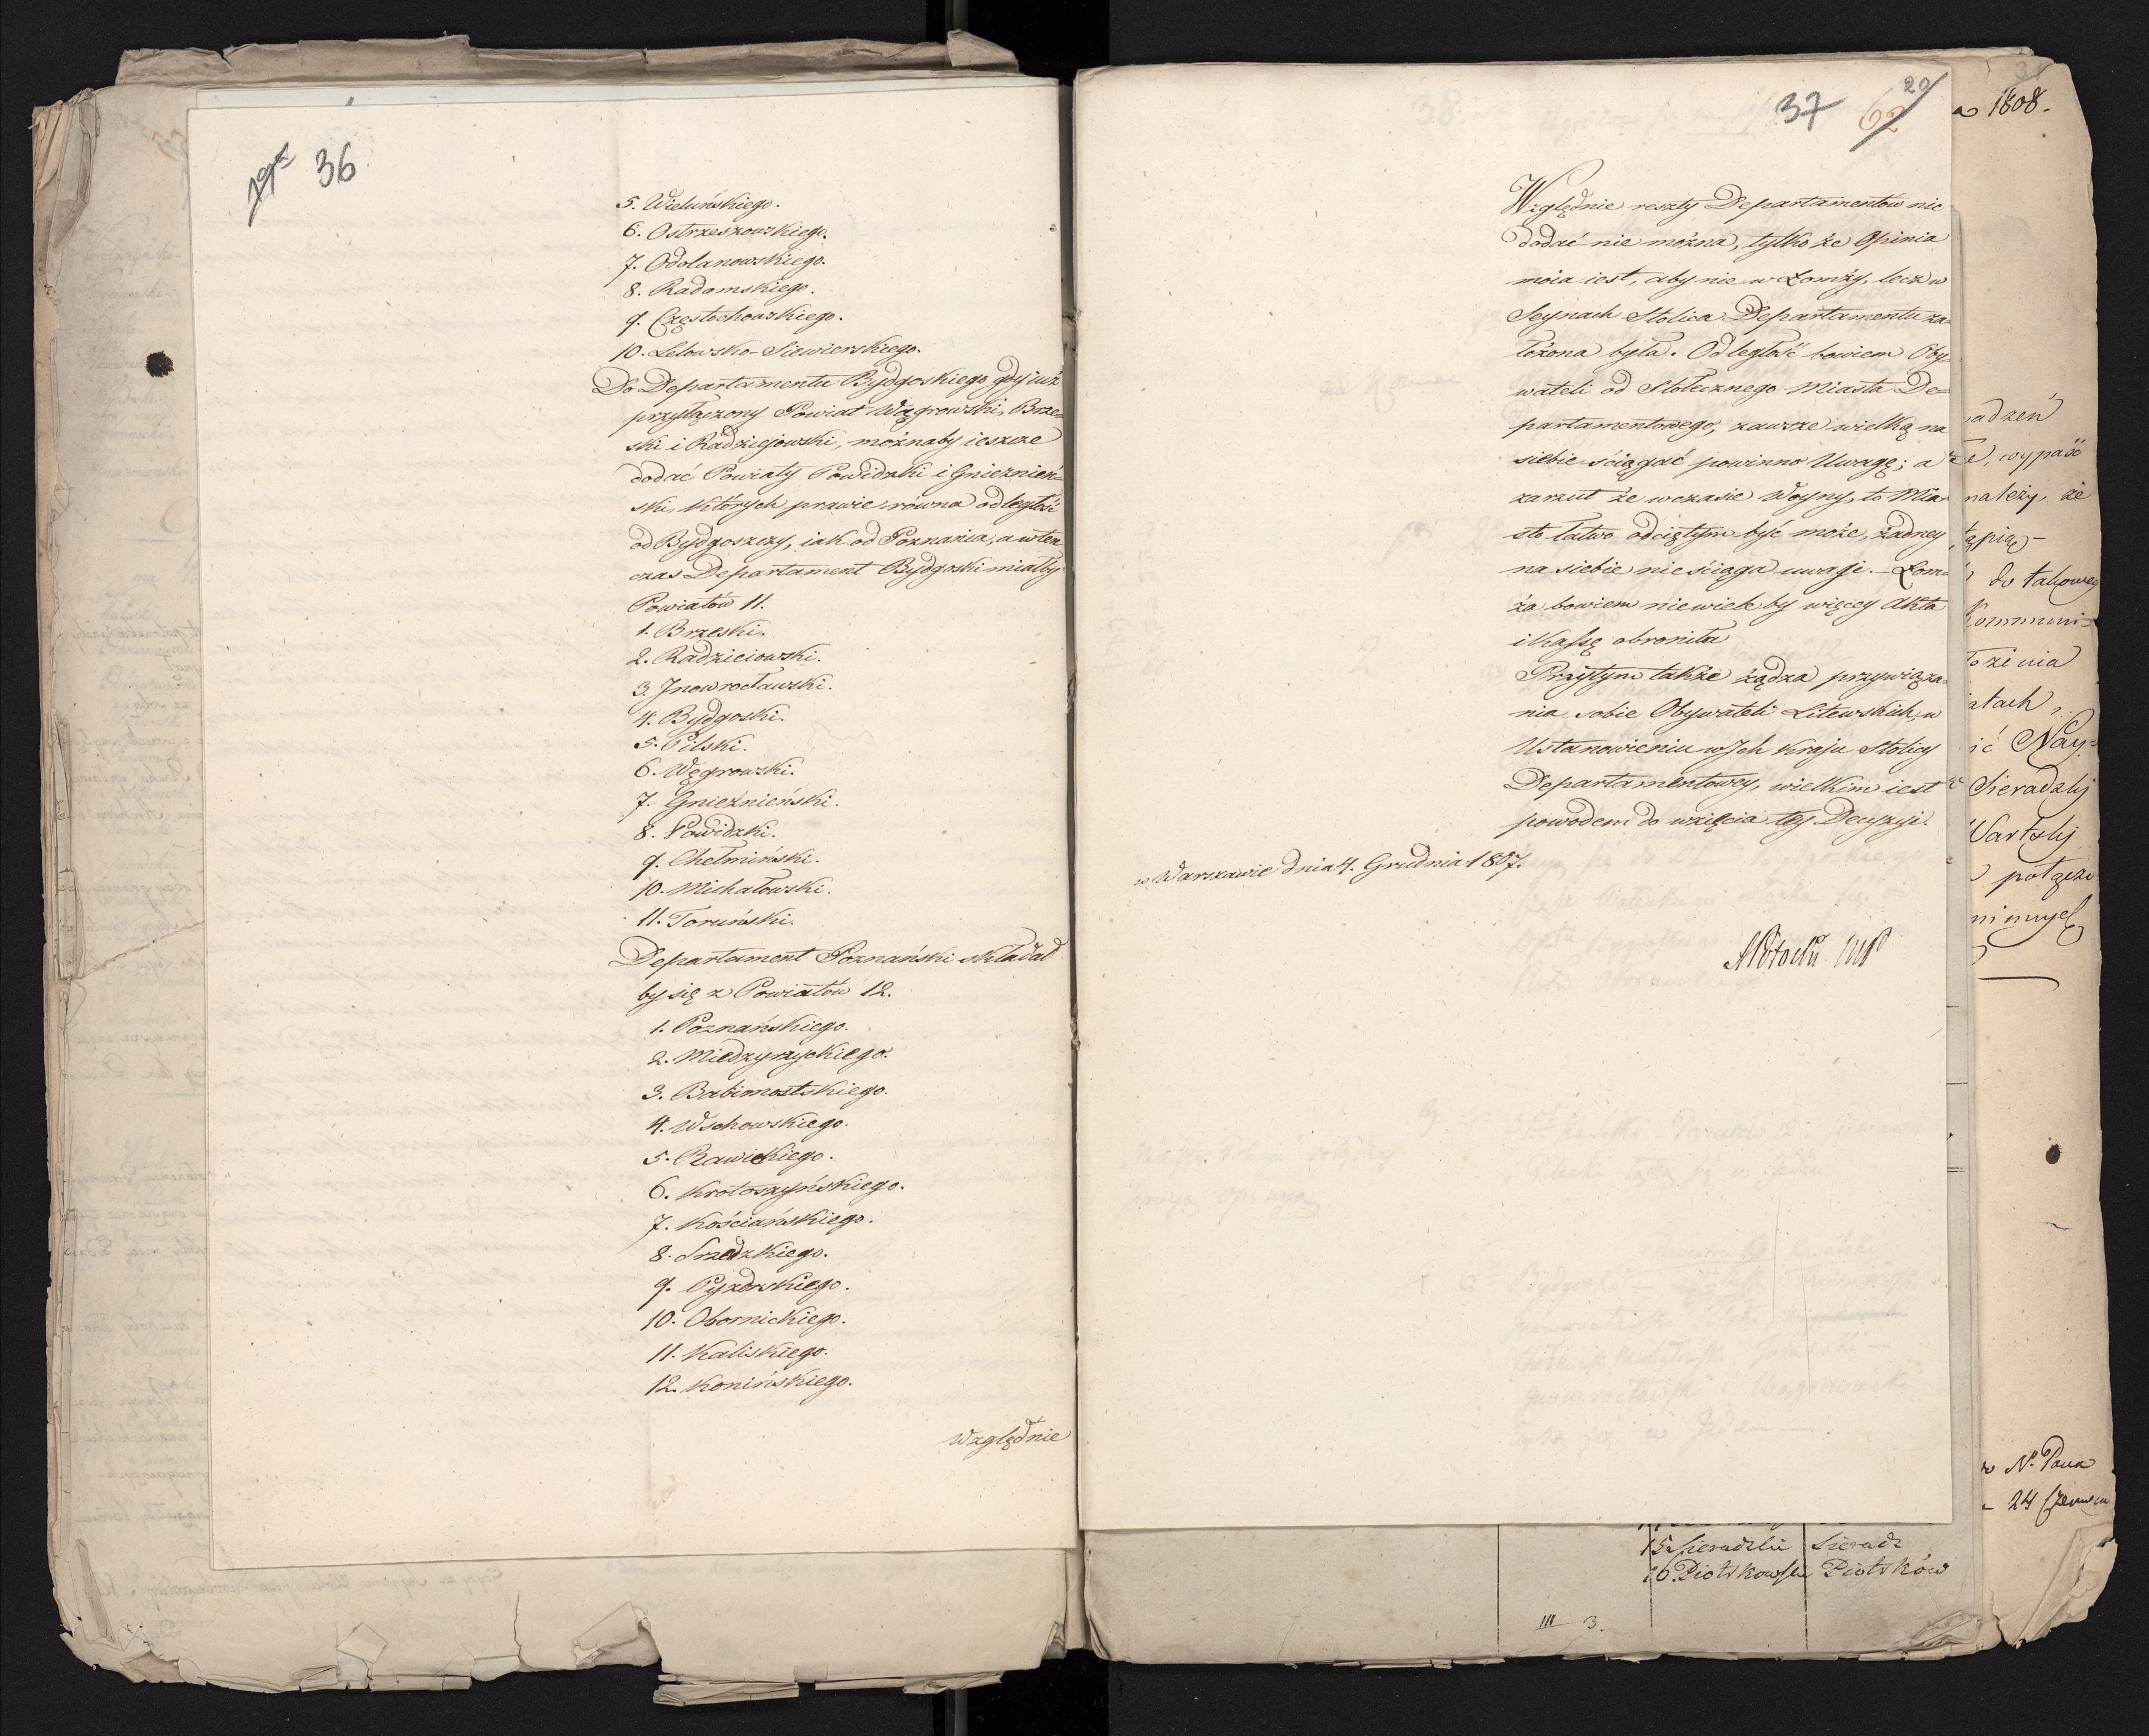 36
5. Wieluńskiego.
6. Ostrzeszowskiego.
7. Odolanowskiego.
8. Radomskiego.
9. Częstochowskiego.
10. Lelowsko-Siewierskiego.
Do Departamentu Bydgoskiego gdy iuż
przyłączony Powiat Wągrowski, Brze=
ski i Radziejowski, możnaby ieszcze
dodać Powiaty Powidzki i Gnieznień=
ski, których prawie równa odległość
od Bydgoszczy, iak od Poznania, a w ten
czas Departament Bydgoski miałby
Powiatów 11.
1. Brzeski.
2. Radzieiowski.
3. Jnowrocławski.
4. Bydgoski.
5. Pilski.
6. Węgrowski.
7. Gnieźnieński.
8. Powidzki.
9. Chełmiński.
10. Michałowski.
11. Toruński.
Departament Poznański składał
by się z Powiatów 12.
1. Poznańskiego.
2. Miedzyrzyckiego.
3. Babimostskiego.
4. Wschowskiego.
5. Rawickiego.
6. Krotoszyńskiego.
7. Kościańskiego.
8. Srzedzkiego.
9. Pyzdrskiego.
10. Obornickiego.
11. Kaliskiego.
12. Konińskiego.
Względnie
37 62 20
Względnie reszty Departamentów nic
dodać nie można, tylko że Opinia
moia iest, aby nie w Łomży, lecz w
Seynach Stolica Departamentu za=
łożona była. Odległość bowiem Oby=
wateli od Stołecznego Miasta De=
partamentowego, zawsze wielką na
siebie ściągać powinno Uwagę; a
zarzut że wczasie Woyny, to Mia=
sto łatwo odciętym być może, żadney
na siebie nie ściąga uwagi. Łom=
ża bowiem niewiele by więcey Akta
i Kassę obroniła
Przytym także żądza przywiąza=
nia sobie Obywateli Litewskich, w
Ustanowieniu w Jch Kraju Stolicy
Departamentowey, wielkim iest
powodem do wzięcia tey Decyzyi.
w Warszawie dnia 4. Grudnia 1807.
1808.
wypaść
należy, że
do takowey
Kommuni=
Nay=
Sieradzkij
N. Pana
24 Czerwca
15 Sieradzki Sieradz
16. Piotrkowski Piotrków
III 3.